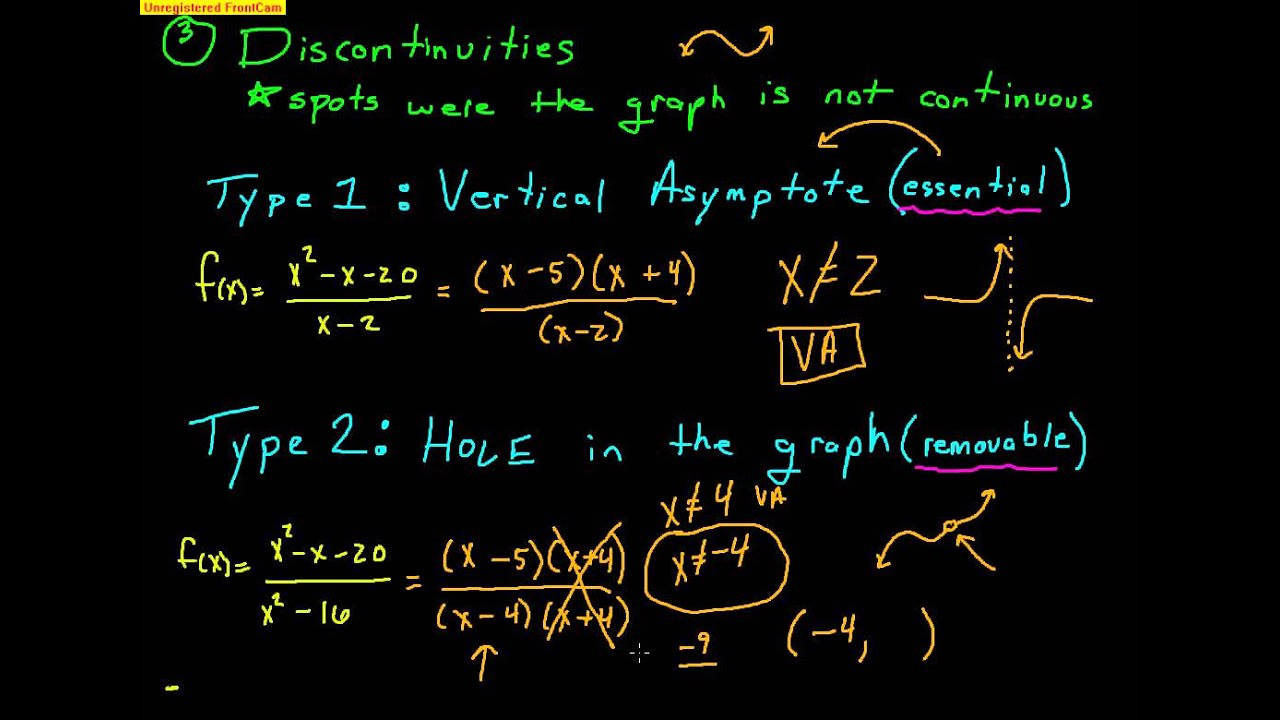 Unregistered FrontCam
3 Discontinuities
* spots were the graph is not continuous
Type 1 : Vertical Asymptote (essential)
f(x) = x² - x - 20 / x - 2 = (x - 5)(x + 4) / (x - 2) x ≠ 2
VA
Type 2: HOLE in the graph (removable)
x ≠ 4 VA
f(x) = x² - x - 20 / x² - 16 = (x - 5)(x + 4) / (x - 4)(x + 4) x ≠ -4
-9 (-4, )